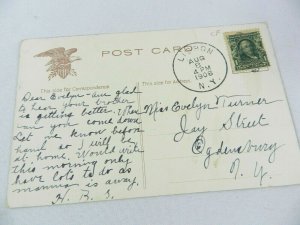 POST CARD
This side for Correspondence
This side for the Address
LISBON
AUG
8
4 PM
1908
N.Y.
Dear Evelyn - am glad
to hear your brother
is getting better. When
can you come down
Let me know before
hand so I will be
at home. Would write
this morning only
have lots to do as
mamma is away.
H. B. S.
Miss Evelyn Turner
Jay Street
Ogdensburg
N. Y.